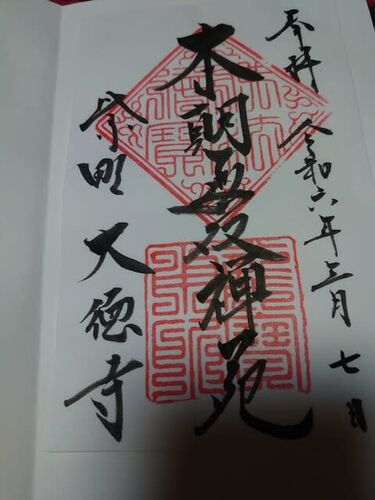 奉拝 令和六年三月七日
本朝無双禅苑
紫野 大徳寺